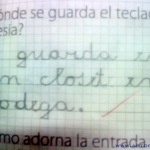 ónde se guarda el teclad
esia?
guarda e
n closet en
odega.
mo adorna la entrada